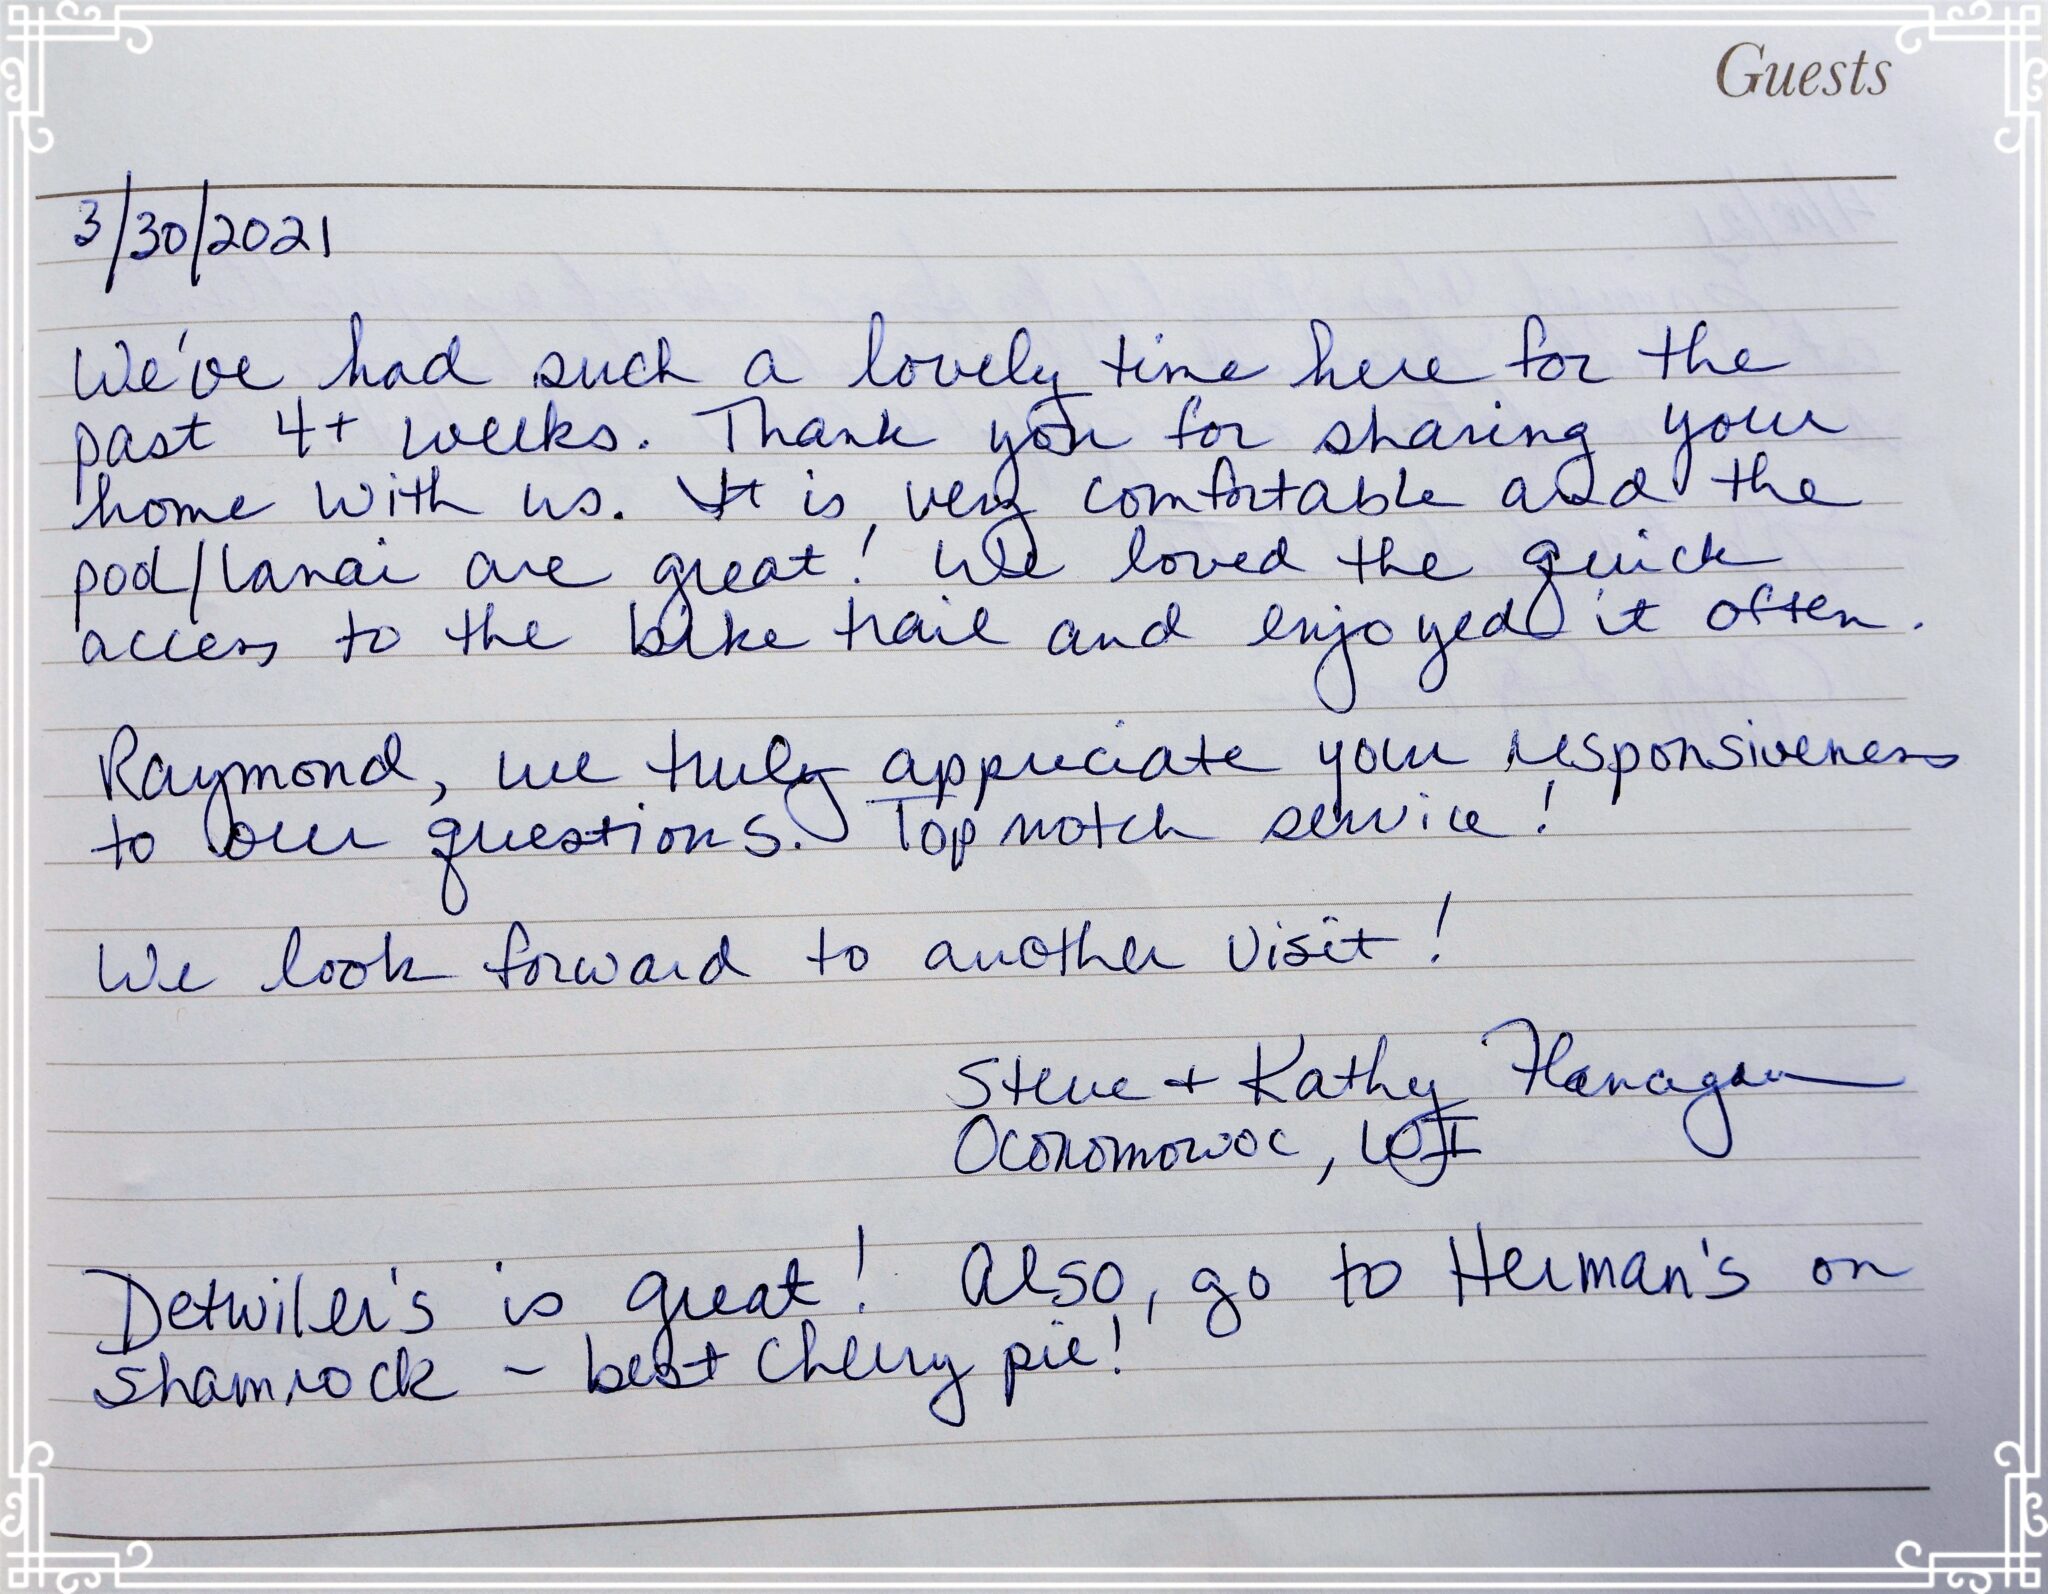 Guests
3/30/2021
We've had such a lovely time here for the
past 4+ weeks. Thank you for sharing your
home with us. It is very comfortable and the
pool/lanai are great! We loved the quick
access to the bike trail and enjoyed it often.
Raymond, we truly appreciate your responsiveness
to our questions. Top notch service!
We look forward to another visit!
Steve + Kathy Flanagan
Oconomowoc, WI
Detwiler's is great! Also, go to Herman's on
Shamrock - best cherry pie!